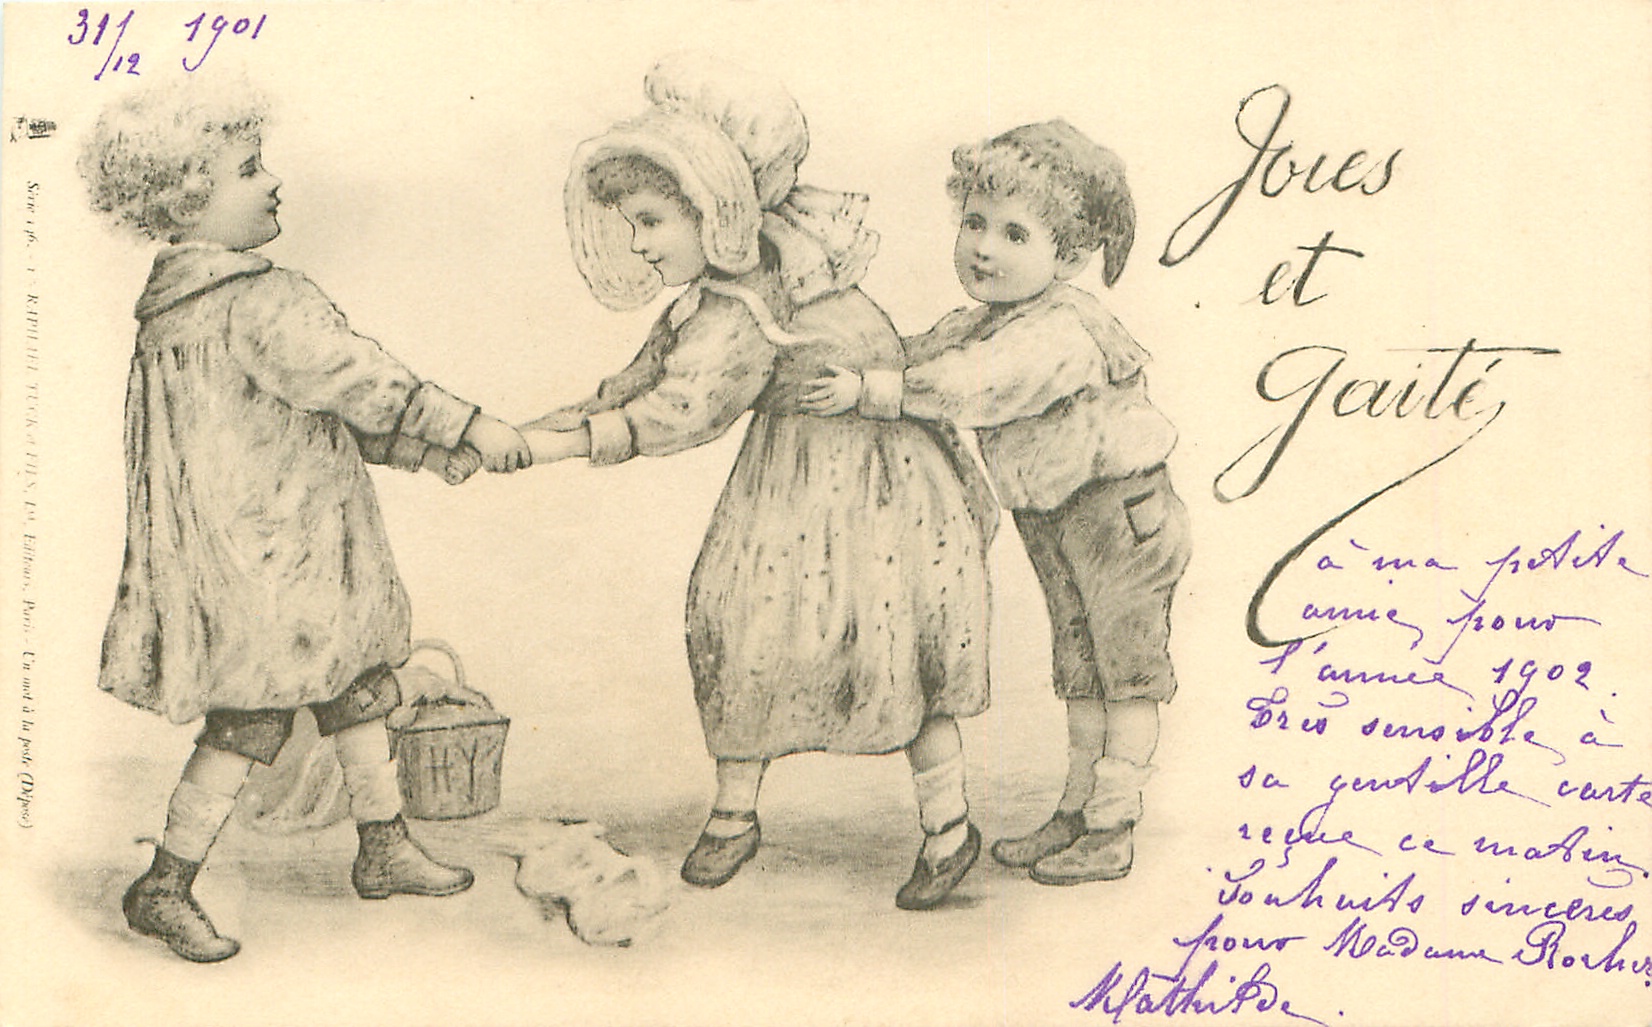 31/12 1901
Joies
et
Gaité
à ma petite
amie, pour
l'année 1902.
Très sensible à
sa gentille carte
reçue ce matin.
Souhaits sincères
pour Madame Rocher.
Mathilde.
Série 146. - RAPHAEL TUCK & FILS, Ld, Editeurs, Paris - Un mot à la poste (Déposé)